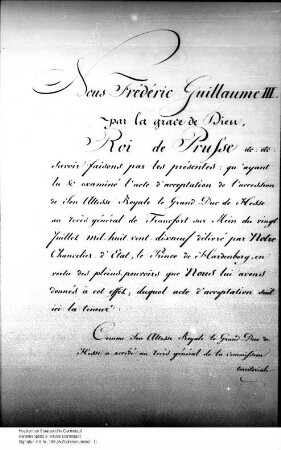 Nous Frédéric Guillaume III.
par la grace de Dieu,
Roi de Prusse &c. &c.
Savoir faisons par les présentes: qu'ayant
lu & examiné l'acte d'acceptation de l'accession
de Son Altesse Royale le Grand Duc de Hesse
au recès général de Francfort sur Mein du vingt
Juillet mil huit cent dixneuf délivré par Notre
Chancelier d'Etat, le Prince de Hardenberg, en
vertu des pleinspouvoirs que Nous lui avons
donnés à cet effet, duquel acte d'acceptation suit
ici la teneur:
Comme Son Altesse Royale le Grand Duc de
Hesse a accédé au recès général de la commission
territoriale
Hessisches Staatsarchiv Darmstadt
Karolinenplatz 3, 64289 Darmstadt